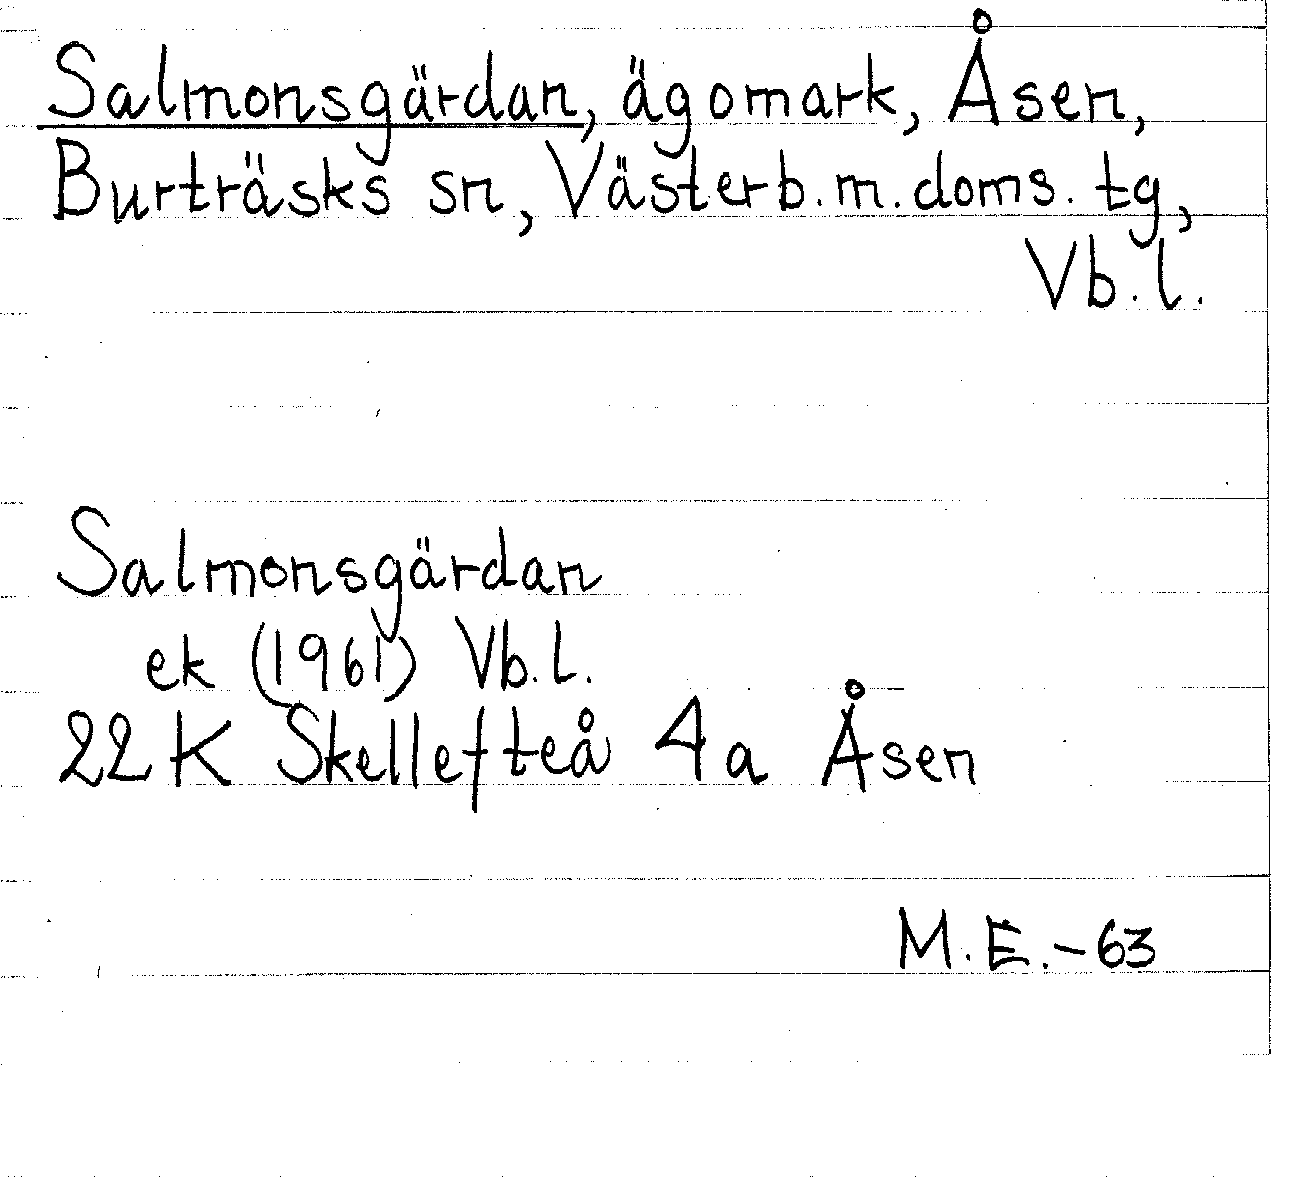 Salmonsgärdan, ägomark, Åsen,
Burträsks sn, Västerb.m.doms.tg,
Vb.l.
Salmonsgärdan
ek (1961) Vb.l.
22K Skellefteå 4a Åsen
M.E.-63